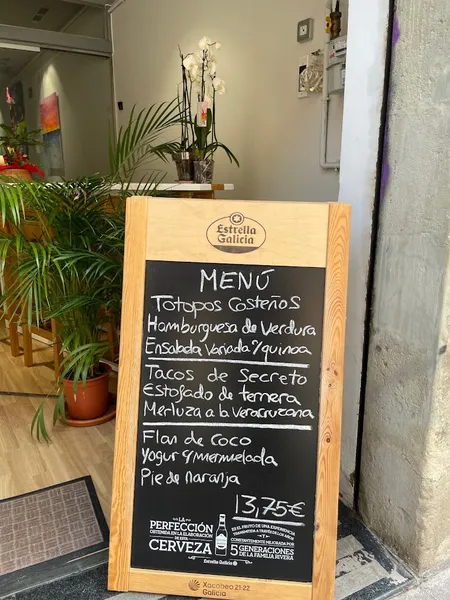 Estrella
Galicia
MENÚ
Totopos Costeños
Hamburguesa de Verdura
Ensalada Variada y quinoa
Tacos de Secreto
Estofado de ternera
Merluza a la Veracruzana
Flan de Coco
Yogur y Mermelada
Pie de naranja
13,75€
LA
PERFECCIÓN
OBTENIDA EN LA ELABORACIÓN
DE ESTA
CERVEZA
ES EL FRUTO DE UNA EXPERIENCIA
TRANSMITIDA A TRAVÉS DE LOS AÑOS
Y
CONSTANTEMENTE MEJORADA POR
5 GENERACIONES
DE LA FAMILIA RIVERA
Estrella Galicia
Xacobeo 21·22
Galicia